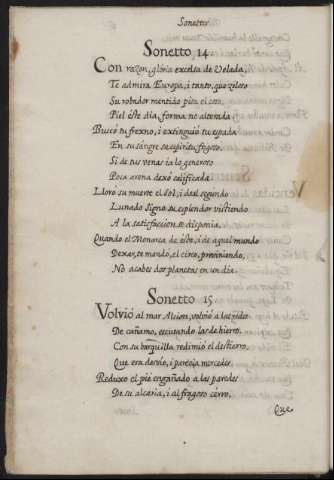 Sonetos
Sonetto 14
Con razon, gloria excelsa de Velada,
Te admira Europa, i tanto, que zeloso
Su robador mentido pisa el coso,
Piel este dia, forma no alterada
Buscò tu frexno, i extinguiò tu espada
En su sangre su espiritu fogoso,
Si de tus venas ia lo generoso
Poca arena dexò calificada
Llorò su muerte el Sol, i del segundo
Lunado signo su esplendor vistiendo
A la satisfaccion se disponia,
Quando el Monarca de este, i de aquel mundo
Dexar, te mandò, el circo, previniendo,
No acabes dos planetas en un dia.
Sonetto 15
Volviò al mar Alcion, volviò a las redes
De cañamo, excusando las de hierro,
Con su barquilla redimiò el destierro,
Que era desvio, i parecia mercedes.
Reduxo el piè engañado a las paredes
De su alcaria, i al fragoso cerro,
Que